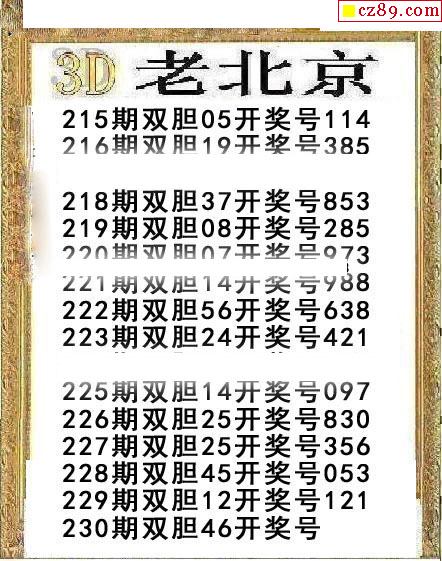 cz89.com
3D 老北京
215期双胆05开奖号114
216期双胆19开奖号385
218期双胆37开奖号853
219期双胆08开奖号285
220期双胆07开奖号973
221期双胆14开奖号988
222期双胆56开奖号638
223期双胆24开奖号421
225期双胆14开奖号097
226期双胆25开奖号830
227期双胆25开奖号356
228期双胆45开奖号053
229期双胆12开奖号121
230期双胆46开奖号